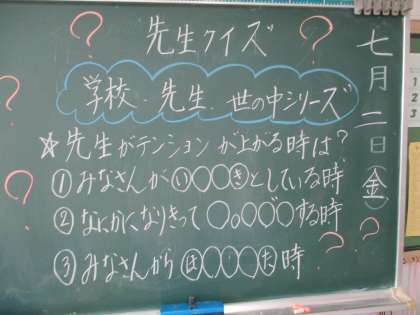 先生クイズ
学校・先生・世の中シリーズ
☆先生がテンションが上がる時は?
①みなさんがⓘ○○きとしている時
②なにかになりきって○。○○゛○する時
③みなさんからほ○○○た時
七月二日(金)
? ? ? ? ? ?
1
2
3